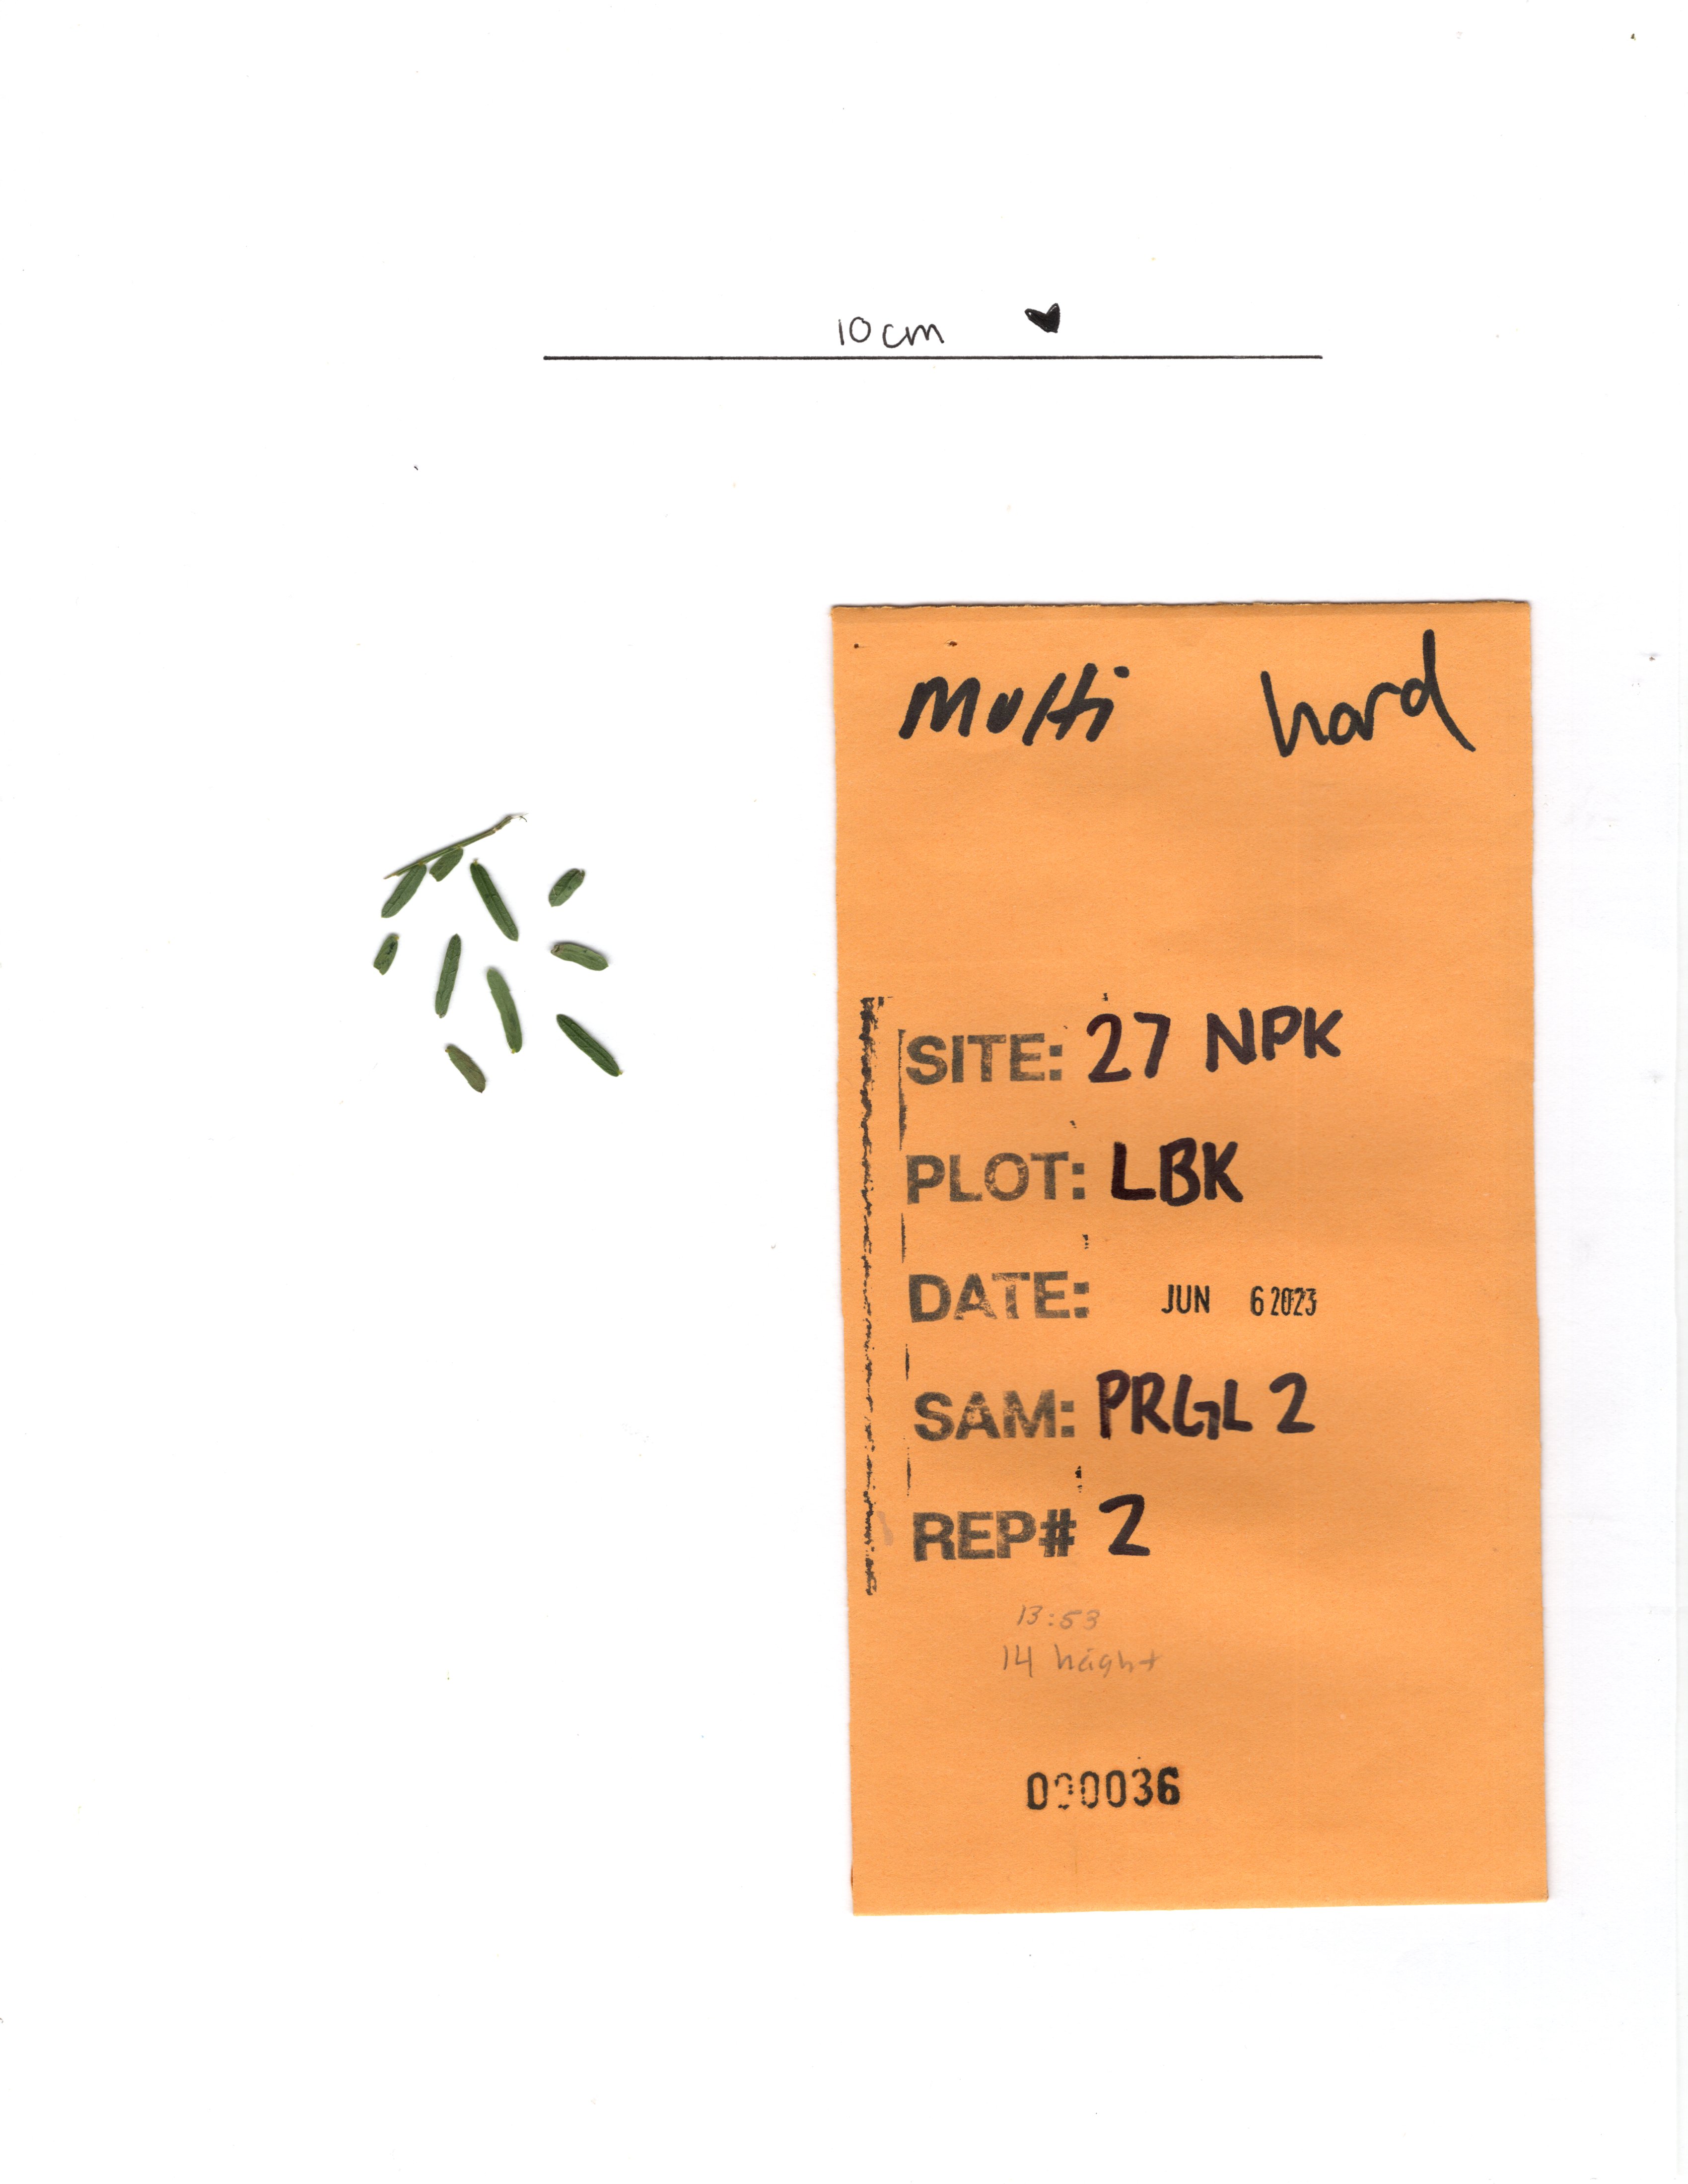 10cm ♥
Multi hard
SITE: 27 NPK
PLOT: LBK
DATE: JUN 6 2023
SAM: PRGL 2
REP# 2
13:53
14 height
000036